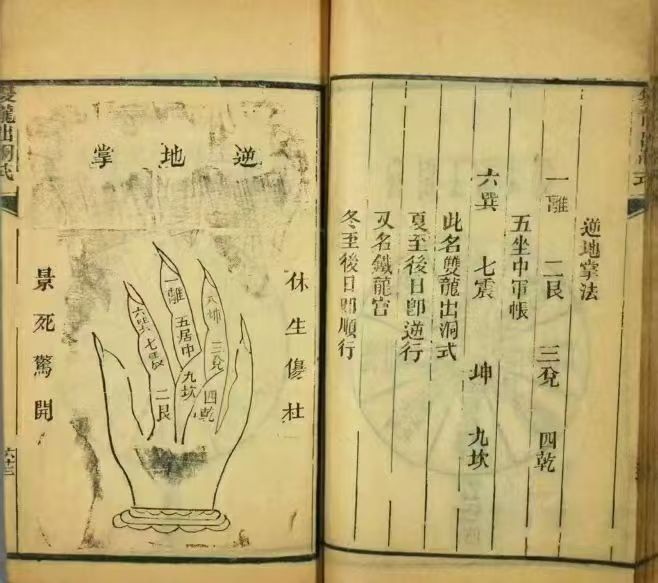 逆地掌法
一離 二艮 三兌 四乾
五坐中軍帳
六巽 七震 坤 九坎
此名雙龍出洞式
夏至後日卽逆行
又名鐵龍宮
冬至後日卽順行
逆地掌
休生傷杜
景死驚開
一離
五居中
九坎
六巽
七震
二艮
八坤
三兌
四乾
雙龍出洞式